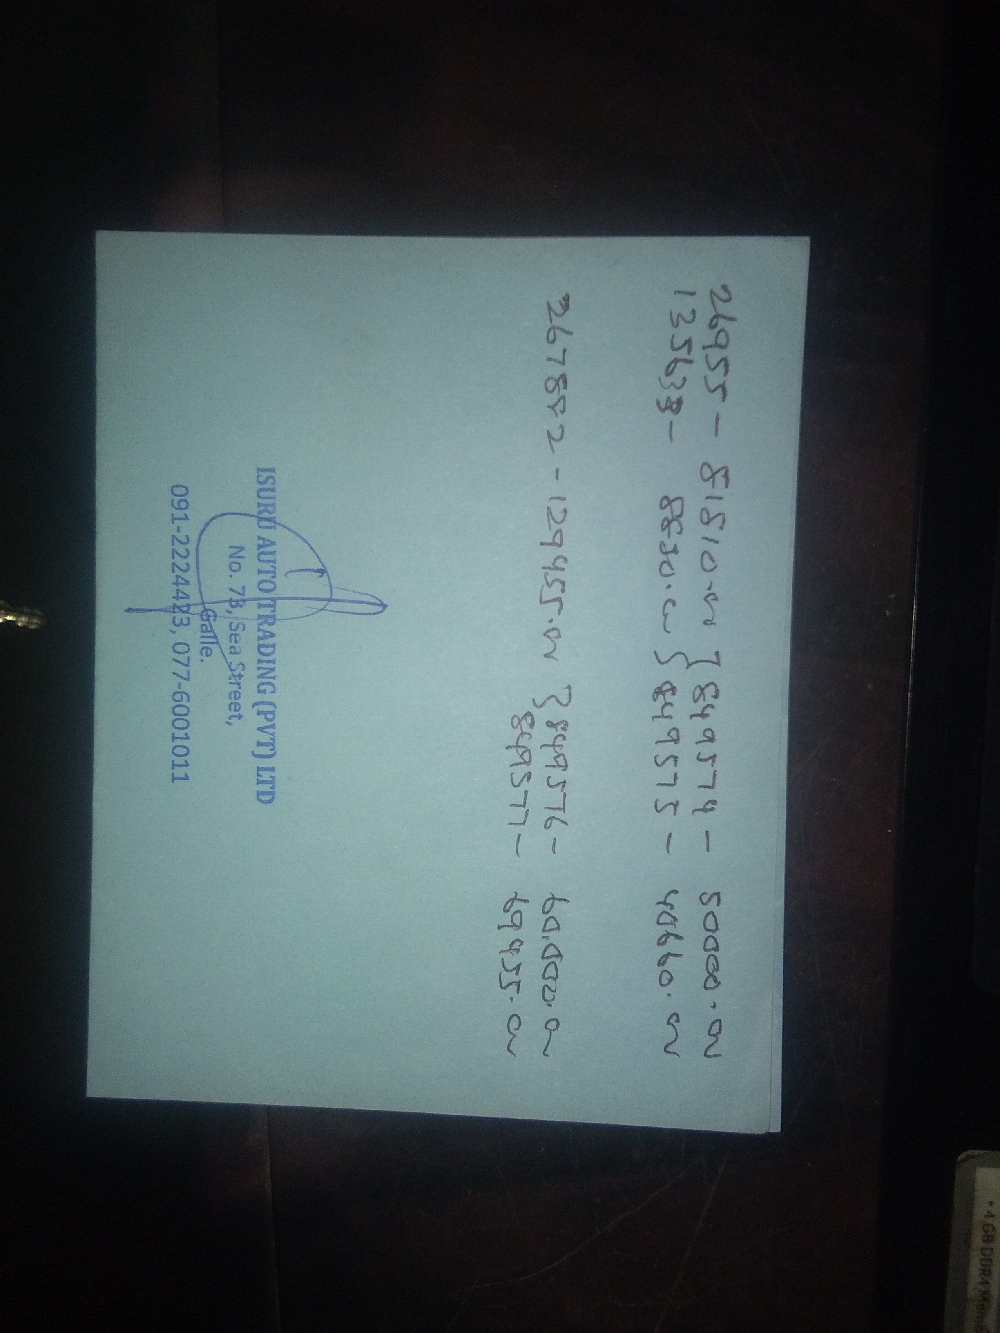 26955 – 81810.00 } 849574 – 50000.00
– 8850.00 } 849575 – 40660.00
267852 - 129455.00 } 849576 – 60,000.00
849577 – 69455.00
ISURU AUTO TRADING (PVT) LTD
No. 73, Sea Street,
Galle.
091-2224423, 077-6001011
4 GB DDR4